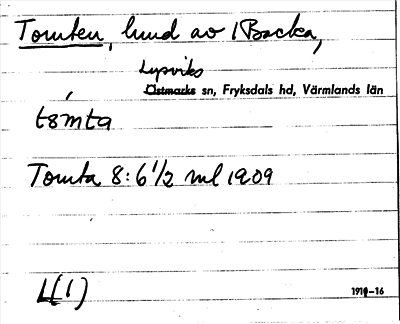 Tomten, lund av 1 Backa,
Lysviks
Östmarks sn, Fryksdals hd, Värmlands län
tómta
Tomta 8:6 1/2 ml 1909
L(1)
1910-16